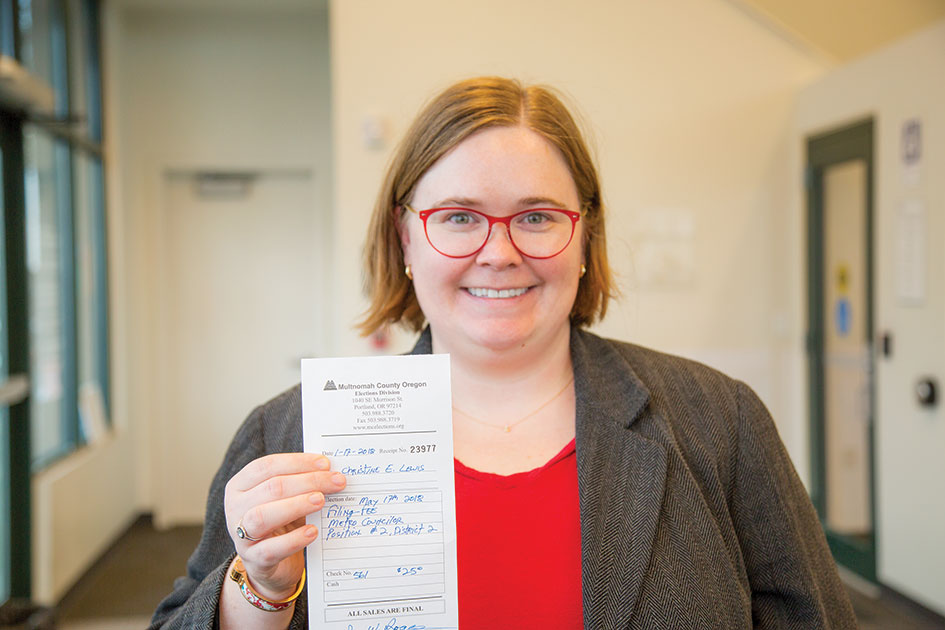 Multnomah County Oregon
Elections Division
1040 SE Morrison St.
Portland, OR 97214
503.988.3720
Fax 503.988.3719
www.mcelections.org
Date 1-17-2018 Receipt No. 23977
Christine E. Lewis
Election date: May 17th 2018
Filing FEE
Metro Councilor
Position #2, District 2
Check No. 561 $25⁰
Cash
ALL SALES ARE FINAL